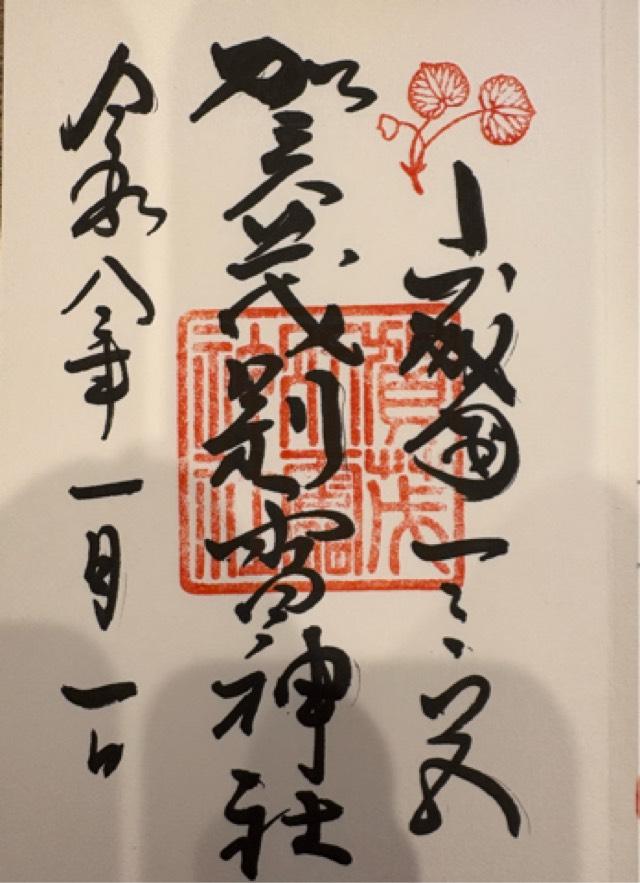 山城國一之宮
賀茂別雷神社
令和八年一月一日
賀茂
別雷
神社